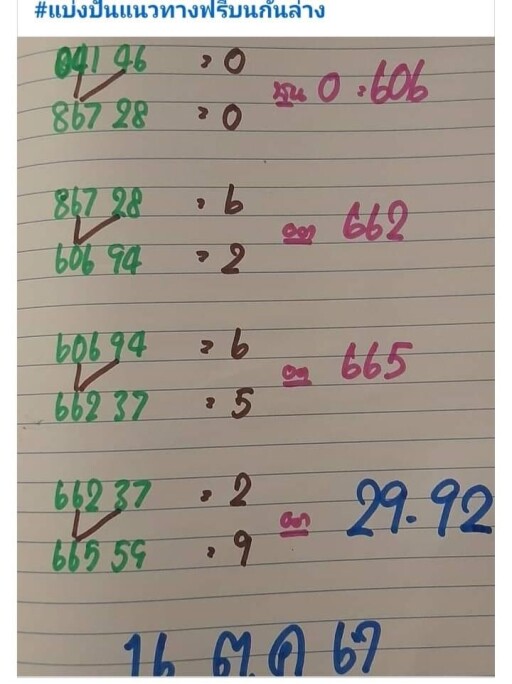 #แบ่งปันแนวทางฟรีบนกันล่าง
041 46 = 0
867 28 = 0
0 = 606
867 28 = 6
606 94 = 2
662
606 94 = 6
662 37 = 5
665
662 37 = 2
665 59 = 9
29.92
16 ต ค 67